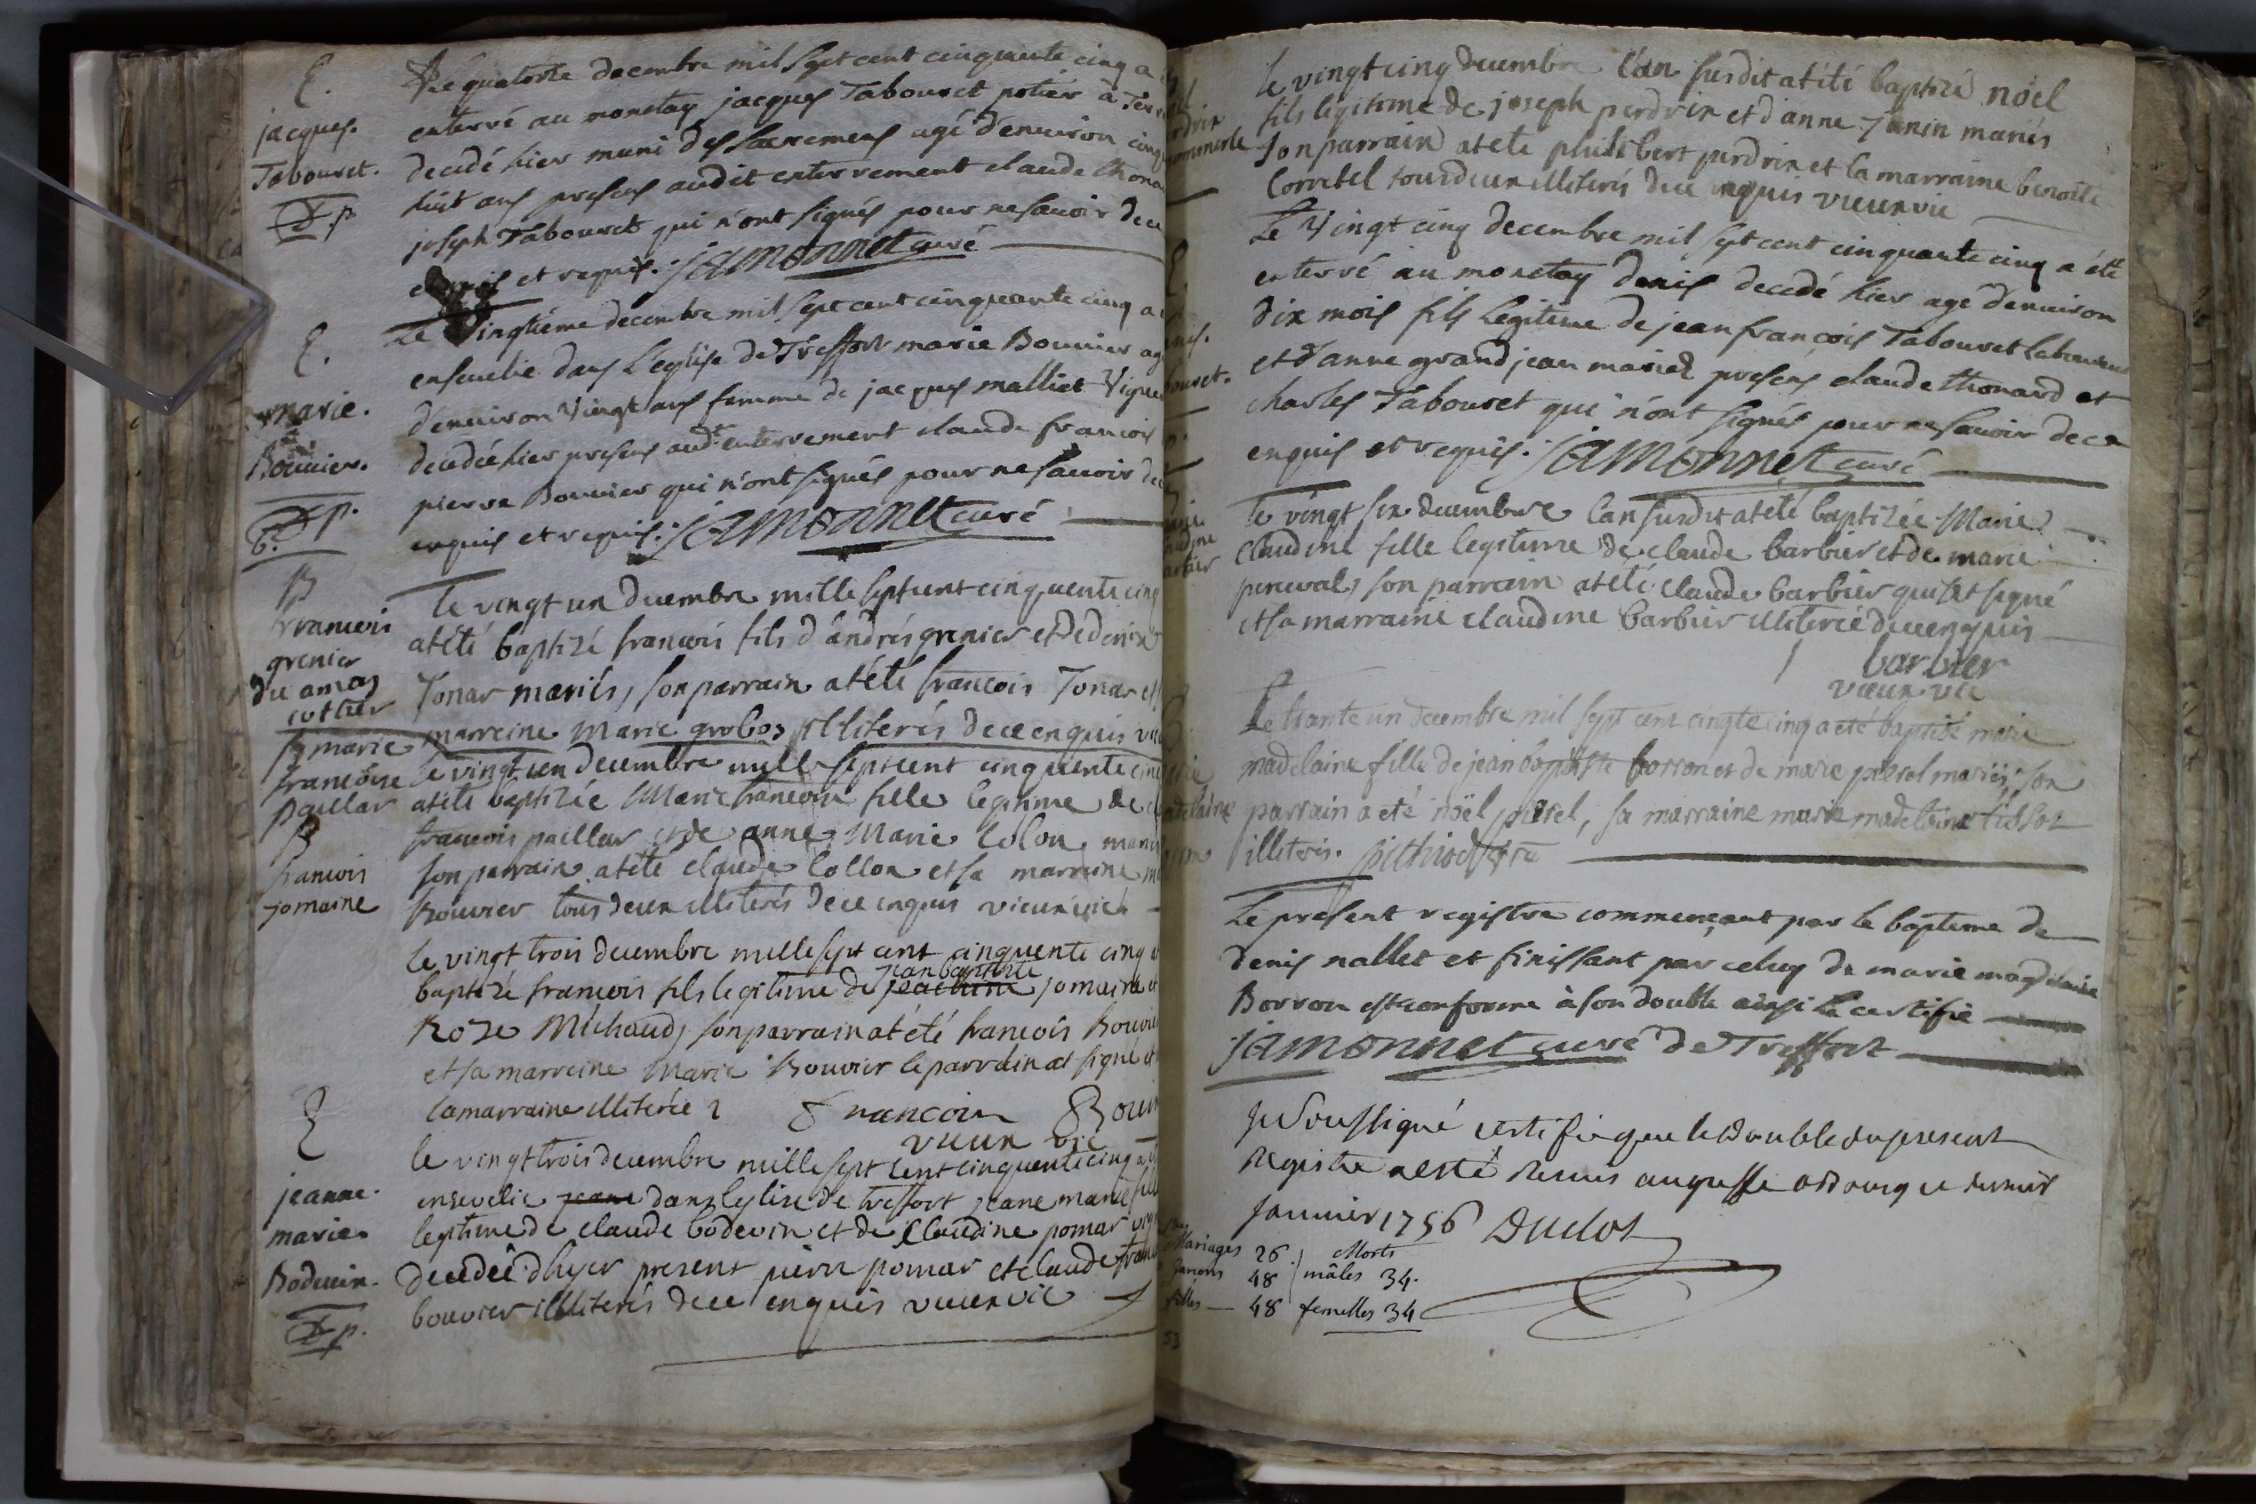 E.
jacques.
Tabouret.
D. p.
Le quatorze decembre mil sept cent cinquante cinq a
enterré au monetay jacques Tabouret potier à
decedé hier muni des sacremens agé d'environ
huit ans presens audit enterrement claude
joseph Tabouret qui n'ont signés pour ne savoir de ce
et requis. jamonnet curé
E.
marie.
Bouvier.
D p.
6.
Le Vingtiéme decembre mil sept cent cinquante cinq a
ensevelie dans l'eglise de Treffort marie Bouvier
d'environ Vingt ans femme de jacques malliet
decedée hier presens audt enterrement claude francois
pierre Bouvier qui n'ont signés pour ne savoir de
enquis et requis. jamonnet curé
B
francois
grenier
du amon
cottier
Le vingt un decembre mille sept cent cinquente cinq
at été baptizé francois fils d'andrés grenier et de
Tonar mariés, son parrain at été francois Tonar et
marreine Marie grobos illiterés de ce enquis
B marie
francoise
paillar
le vingt un decembre mille sept cent cinquente cinq
at été baptizée Marie francoise fille legitime de
francois paillar et de anne Marie Colon
son parrain at été claude Collon et sa marreine
Bouvier tous deux illiterés de ce enquis vieux vic
B
francois
jomaine
le vingt trois decembre mille sept cent cinquente cinq
baptizé francois fils legitime de jean baptiste jomaine
Roze Michaud, son parrain at été francois Bouvier
et sa marreine Marie Bouvier le parrain at signé et
la marraine illiterée francoin
vieux vic
E
jeanne.
marie.
Boduin.
D p.
le vingt trois decembre mille sept cent cinquente cinq
ensevelie dans l'eglise de treffort jeane marie
legitime de claude bodevin et de Claudine pomar
decedée d'hyer present pierre pomar et claude
bouvier illiterés de ce enquis vieux vic
le vingt cinq decembre l'an susdit at été baptizé nöel
fils legitime de joseph perdrix et d'anne janin mariés
son parrain at été philibert perdrix et la marraine benoite
tous deux illiterés de ce enquis vieux vic
Le Vingt cinq decembre mil sept cent cinquante cinq a été
enterré au monetay denis decedé hier agé d'environ
dix mois fils legitime de jean françois Tabouret laboureur
et d'anne grand jean mariés presens claude thonard et
charles Tabouret qui n'ont signés pour ne savoir de ce
enquis et requis. jamonnet curé
le vingt six decembre l'an susdit at été baptizée Marie
Claudine fille legitime de claude barbier et de marie
perceval, son parrain at été claude barbier qui at signé
et sa marraine claudine barbier illiterée de ce enquis
barbier
vieux vic
Le trante un decembre mil sept cent cinqte cinq a eté baptisé marie
madelaine fille de jean baptiste borron et de marie mariés; son
parrain a eté noël, sa marraine marie madelaine tissot
illiteris.
Le present registre commençant par le bapteme de
denis nallet et finissant par celuy de marie magdelaine
Borron est conforme à son double ainsi le certifie
jamonnet curé de Treffort
Je soussigné certifie que le double du present
registre a esté remis au greffe
janvier 1756 Duclot
Mariages 26.
garcons 48
filles — 48
Morts
mâles 34.
femelles 34